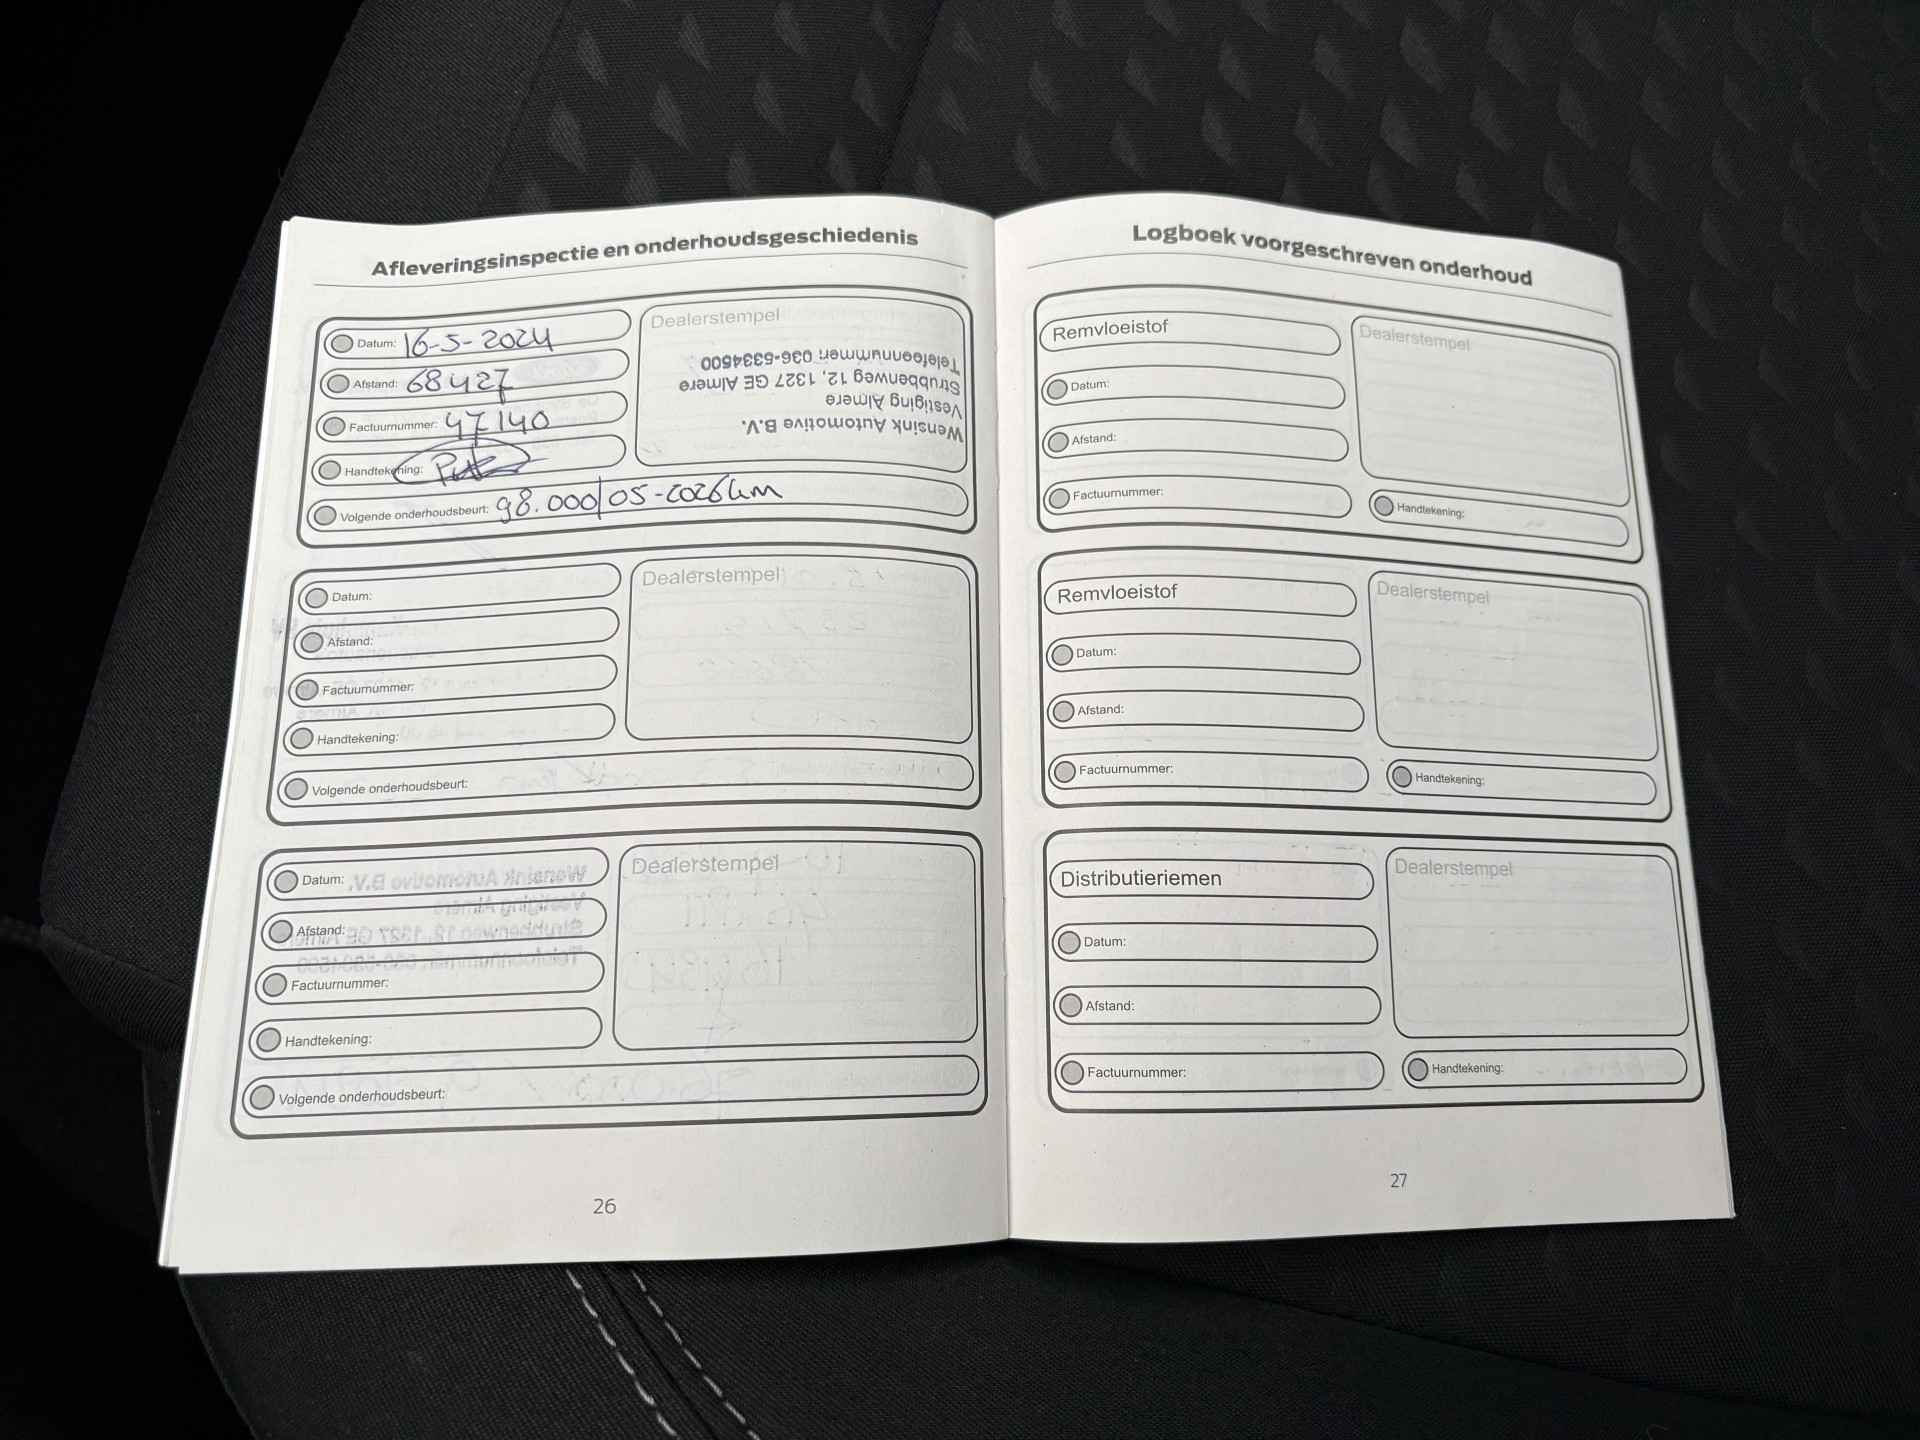 Afleveringsinspectie en onderhoudsgeschiedenis
Datum: 16-5-2024
Afstand: 68427
Factuurnummer: 47140
Handtekening:
Volgende onderhoudsbeurt: 98.000/05-2026 km
Dealerstempel
Wensink Automotive B.V.
Vestiging Almere
Strubbenweg 12, 1327 GE Almere
Telefoonnummer: 036-5334500
Datum:
Afstand:
Factuurnummer:
Handtekening:
Volgende onderhoudsbeurt:
Dealerstempel
Datum:
Afstand:
Factuurnummer:
Handtekening:
Volgende onderhoudsbeurt:
Dealerstempel
26
Logboek voorgeschreven onderhoud
Remvloeistof
Datum:
Afstand:
Factuurnummer:
Dealerstempel
Handtekening:
Remvloeistof
Datum:
Afstand:
Factuurnummer:
Dealerstempel
Handtekening:
Distributieriemen
Datum:
Afstand:
Factuurnummer:
Dealerstempel
Handtekening:
27